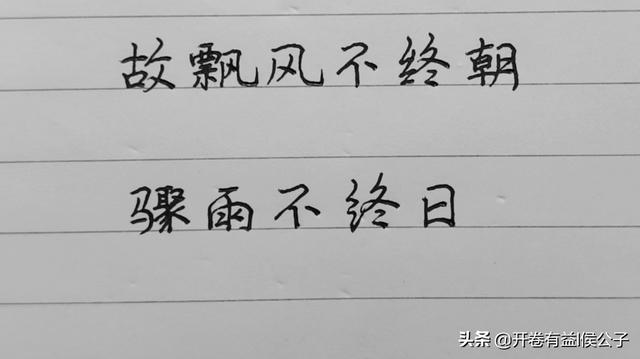 故飘风不终朝
骤雨不终日
头条 @开卷有益I侯公子